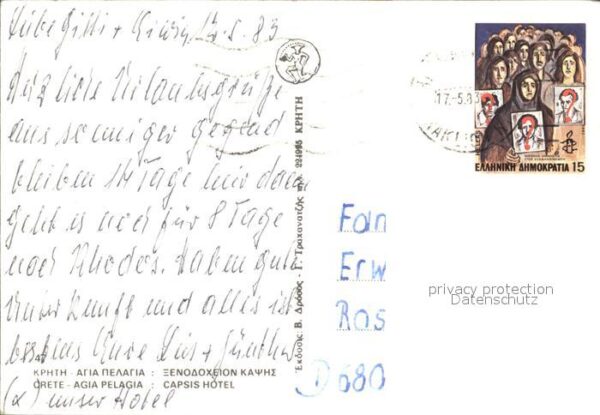 Liebe Gitti + Erwin 17.5.83
Herzliche Urlaubsgrüße
aus sonniger Gegend
bleiben 14 Tage hier dann
geht es noch für 8 Tage
nach Rhodos. Haben gute
Unterkunft und alles ist
bestens Eure + Günther
ΚΡΗΤΗ - ΑΓΙΑ ΠΕΛΑΓΙΑ : ΞΕΝΟΔΟΧΕΙΟΝ ΚΑΨΗΣ
CRETE - AGIA PELAGIA : CAPSIS HOTEL
(x) unser Hotel
Έκδοσις Β. Δρόσος - Γ. Τραχανατζής τηλ. 224995 ΚΡΗΤΗ
17.-5.83
ΕΛΛΗΝΙΚΗ ΔΗΜΟΚΡΑΤΙΑ 15
Fam
Erw
Ros
D 680
privacy protection
Datenschutz